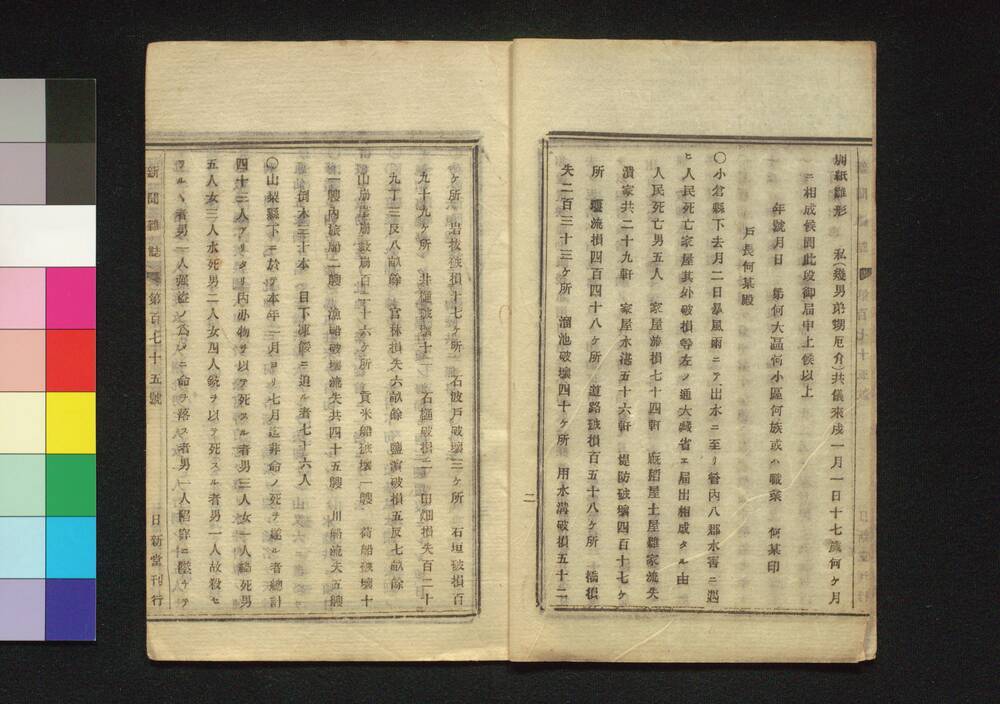 届紙雛形　私(幾男弟甥厄介)共儀來戌一月一日十七歳何ケ月
ニ相成候間此段御届申上候以上
年號月日　第何大區何小區何族或ハ職業　何某印
戸長何某殿
〇小倉縣下去月二日暴風雨ニテ出水ニ至リ管内八郡水害ニ遇
ヒ人民死亡家屋其外破損等左ノ通大藏省エ届出相成タル由
人民死亡男五人　家屋漭損七十四軒　厩稲屋土屋雜家流失
潰家共二十九軒　家屋水湛五十六軒　堤防破壊四百十七ケ
所　壚流損四百四十八ケ所　道路破損百五十八ケ所　橋損
失二百三十三ケ所　溜池破壊四十ケ所　用水溝破損五十二
二
ケ所　岩抜破損十七ケ所　石波戸破壊三ケ所　石垣破損百
九十九ケ所　井樋破壊十　石樋破損二　田畑損失百二十
九丁三反八畝餘　官林損失六畝餘　鹽濵破損五反七畝餘
山崩岸崩數崩百二十六ケ所　貢米船破壊一艘　荷船破壊十
一艘内級船二艘　漁船破壊流失共四十五艘　川船流失五艘
倒木三十本　目下凍餒ニ迫ル者七十六人
〇山梨縣下ニ於テ本年二月ヨリ七月迄非命ノ死ヲ遂ル者總計
四十三人アリタリ内劇物ヲ以テ死スル者男三人女一人縊死男
五人女三人水死男二人女四人銃ヲ以テ死スル者男一人故殺セ
ラルヽ者男一人強盗ノ爲ニ命ヲ落ス者男一人陷穽ニ墜ケテ
新聞雜誌　第百七十五號　日新堂刊行